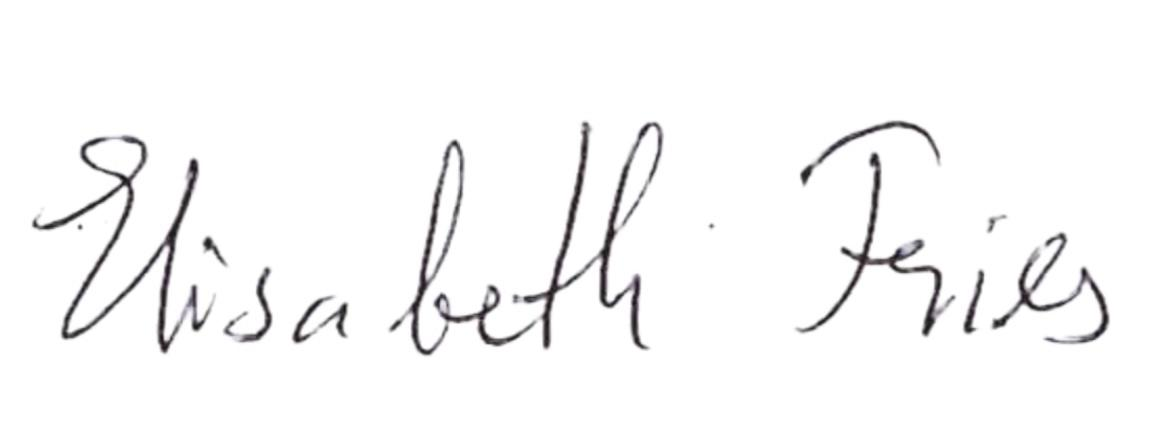 Elisabeth Fries